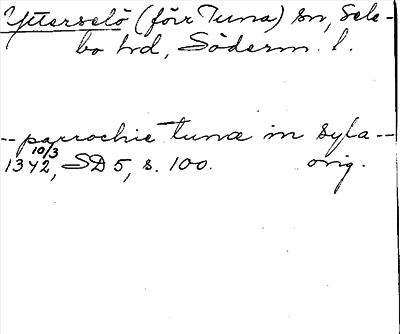 Ytterselö (förr Tuna) sn, Sele-
bo hd, Söderm. l.
-- parrochie tunæ in syla --
10/3
1342, SD 5, s. 100. orig.